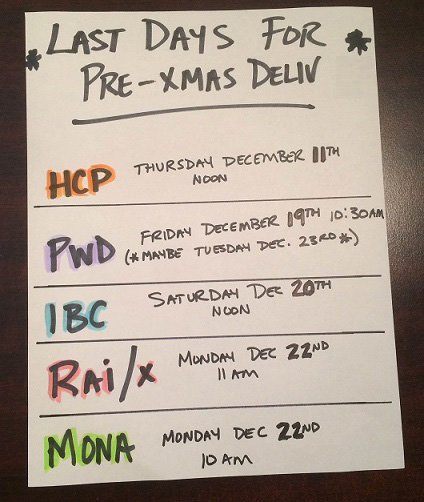 * LAST DAYS FOR *
PRE-XMAS DELIV
HCP THURSDAY DECEMBER 11TH
NOON
PWD FRIDAY DECEMBER 19TH 10:30AM
(*MAYBE TUESDAY DEC. 23RD*)
IBC SATURDAY DEC 20TH
NOON
RAi/x MONDAY DEC 22ND
11 AM
MONA MONDAY DEC 22ND
10 AM